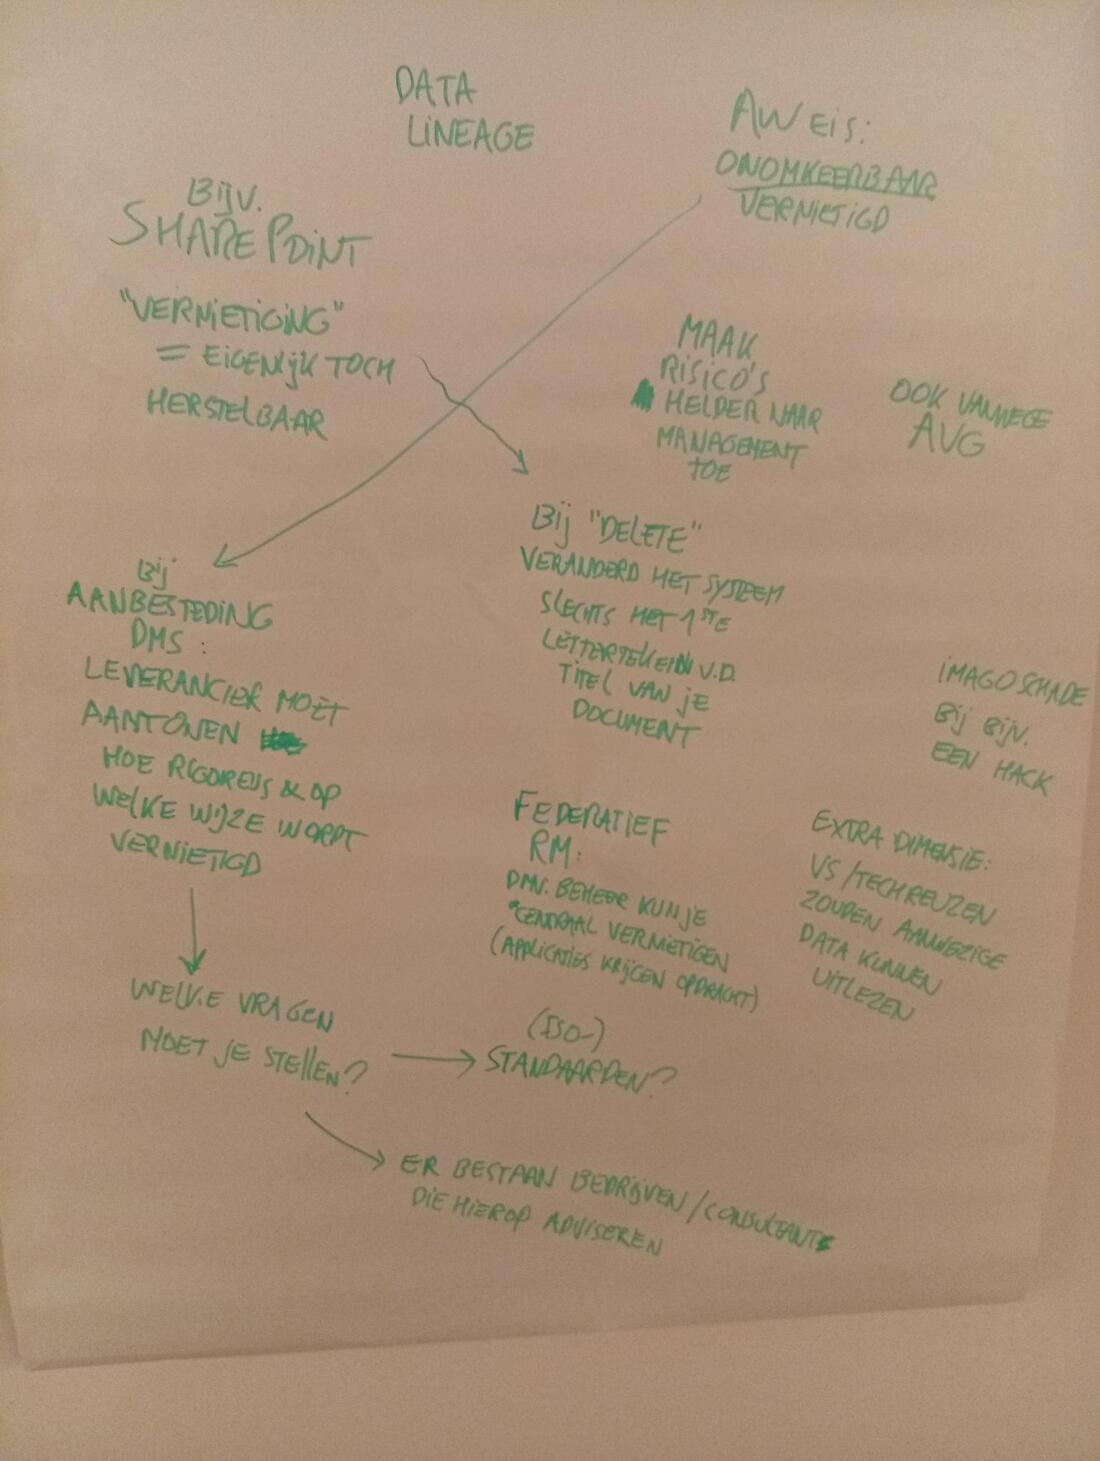 DATA
LINEAGE
AW eis:
ONOMKEERBAAR
VERNIETIGD
BIJV.
SHAREPOINT
"VERNIETIGING"
= EIGENLIJK TOCH
HERSTELBAAR
MAAK
RISICO'S
HELDER NAAR
MANAGEMENT
TOE
OOK VANWEGE
AVG
BIJ "DELETE"
VERANDERD HET SYSTEEM
SLECHTS HET 1STE
LETTERTEKEIN V.D.
TITEL VAN JE
DOCUMENT
BIJ
AANBESTEDING
DMS:
LEVERANCIER MOET
AANTONEN
HOE RIGOREUS & OP
WELKE WIJZE WORDT
VERNIETIGD
IMAGOSCHADE
BIJ BIJV.
EEN HACK
FEDERATIEF
RM:
DMV. BEHEER KUN JE
CENTRAAL VERNIETIGEN
(APPLICATIES KRIJGEN OPDRACHT)
EXTRA DIMENSIE:
VS/TECHREUZEN
ZOUDEN AANWEZIGE
DATA KUNNEN
UITLEZEN
WELKE VRAGEN
MOET JE STELLEN?
(ISO-)
STANDAARDEN?
ER BESTAAN BEDRIJVEN/CONSULTANTS
DIE HIEROP ADVISEREN